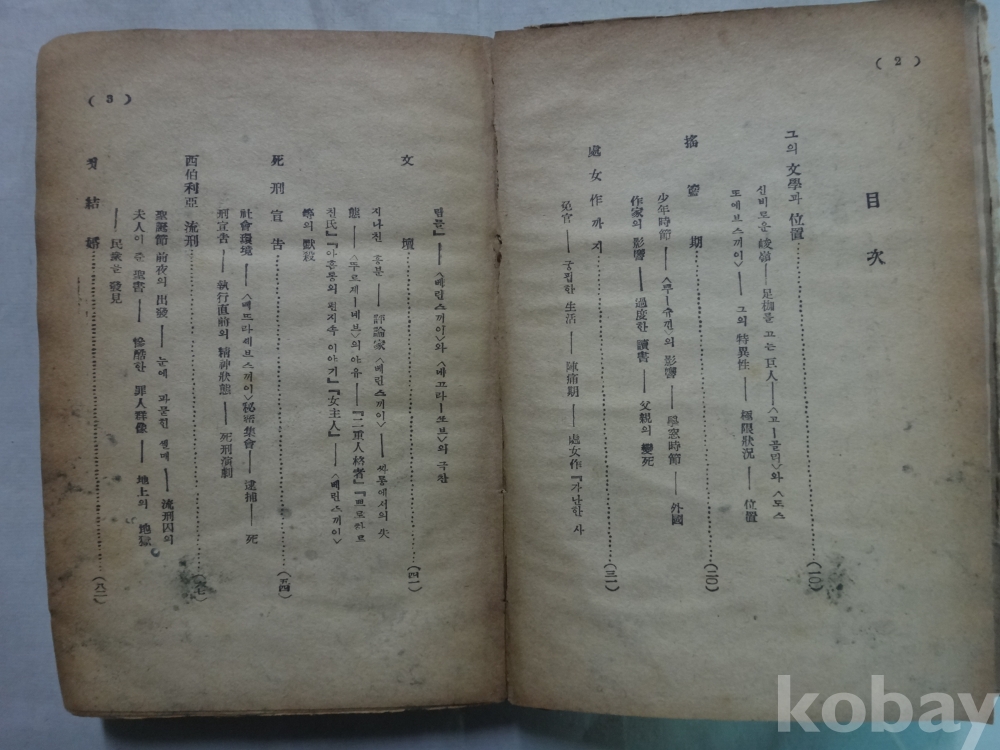 ( 2 )
目次
그의 文學과 位置……(一〇)
신비로운 峻嶺——足枷를 끄는 巨人——〈꼬—골리〉와 〈도스
또에브스끼이〉——그의 特異性——極限狀況——位置
搖籃期……(二〇)
少年時節——〈푸—슈낀〉의 影響——學窓時節——外國
作家의 影響——過度한 讀書——父親의 變死
處女作까지……(三一)
免官——궁핍한 生活——陣痛期——處女作『가난한 사
( 3 )
람들』——〈베린스끼이〉와 〈네끄라—쏘브〉의 극찬
文壇……(四一)
지나친 흥분——評論家 〈베린스끼이〉——싸롱에서의 失
態——〈뚜르게—네브〉의 야유——『二重人格者』『쁘로하르
친氏』『아홉통의 편지속 이야기』『女主人』——〈베린스끼이〉
等의 默殺
死刑宣告……(五四)
社會環境——〈뻬뜨라셰브스끼이〉秘密集會——逮捕——死
刑宣告——執行直前의 精神狀態——死刑演劇
西伯利亞 流刑……(六七)
聖誕節 前夜의 出發——눈에 파묻힌 썰매——流刑囚의
夫人이 준 聖書——慘酷한 罪人群像——地上의 地獄
——民衆을 發見
첫 結婚……(八二)
kobay